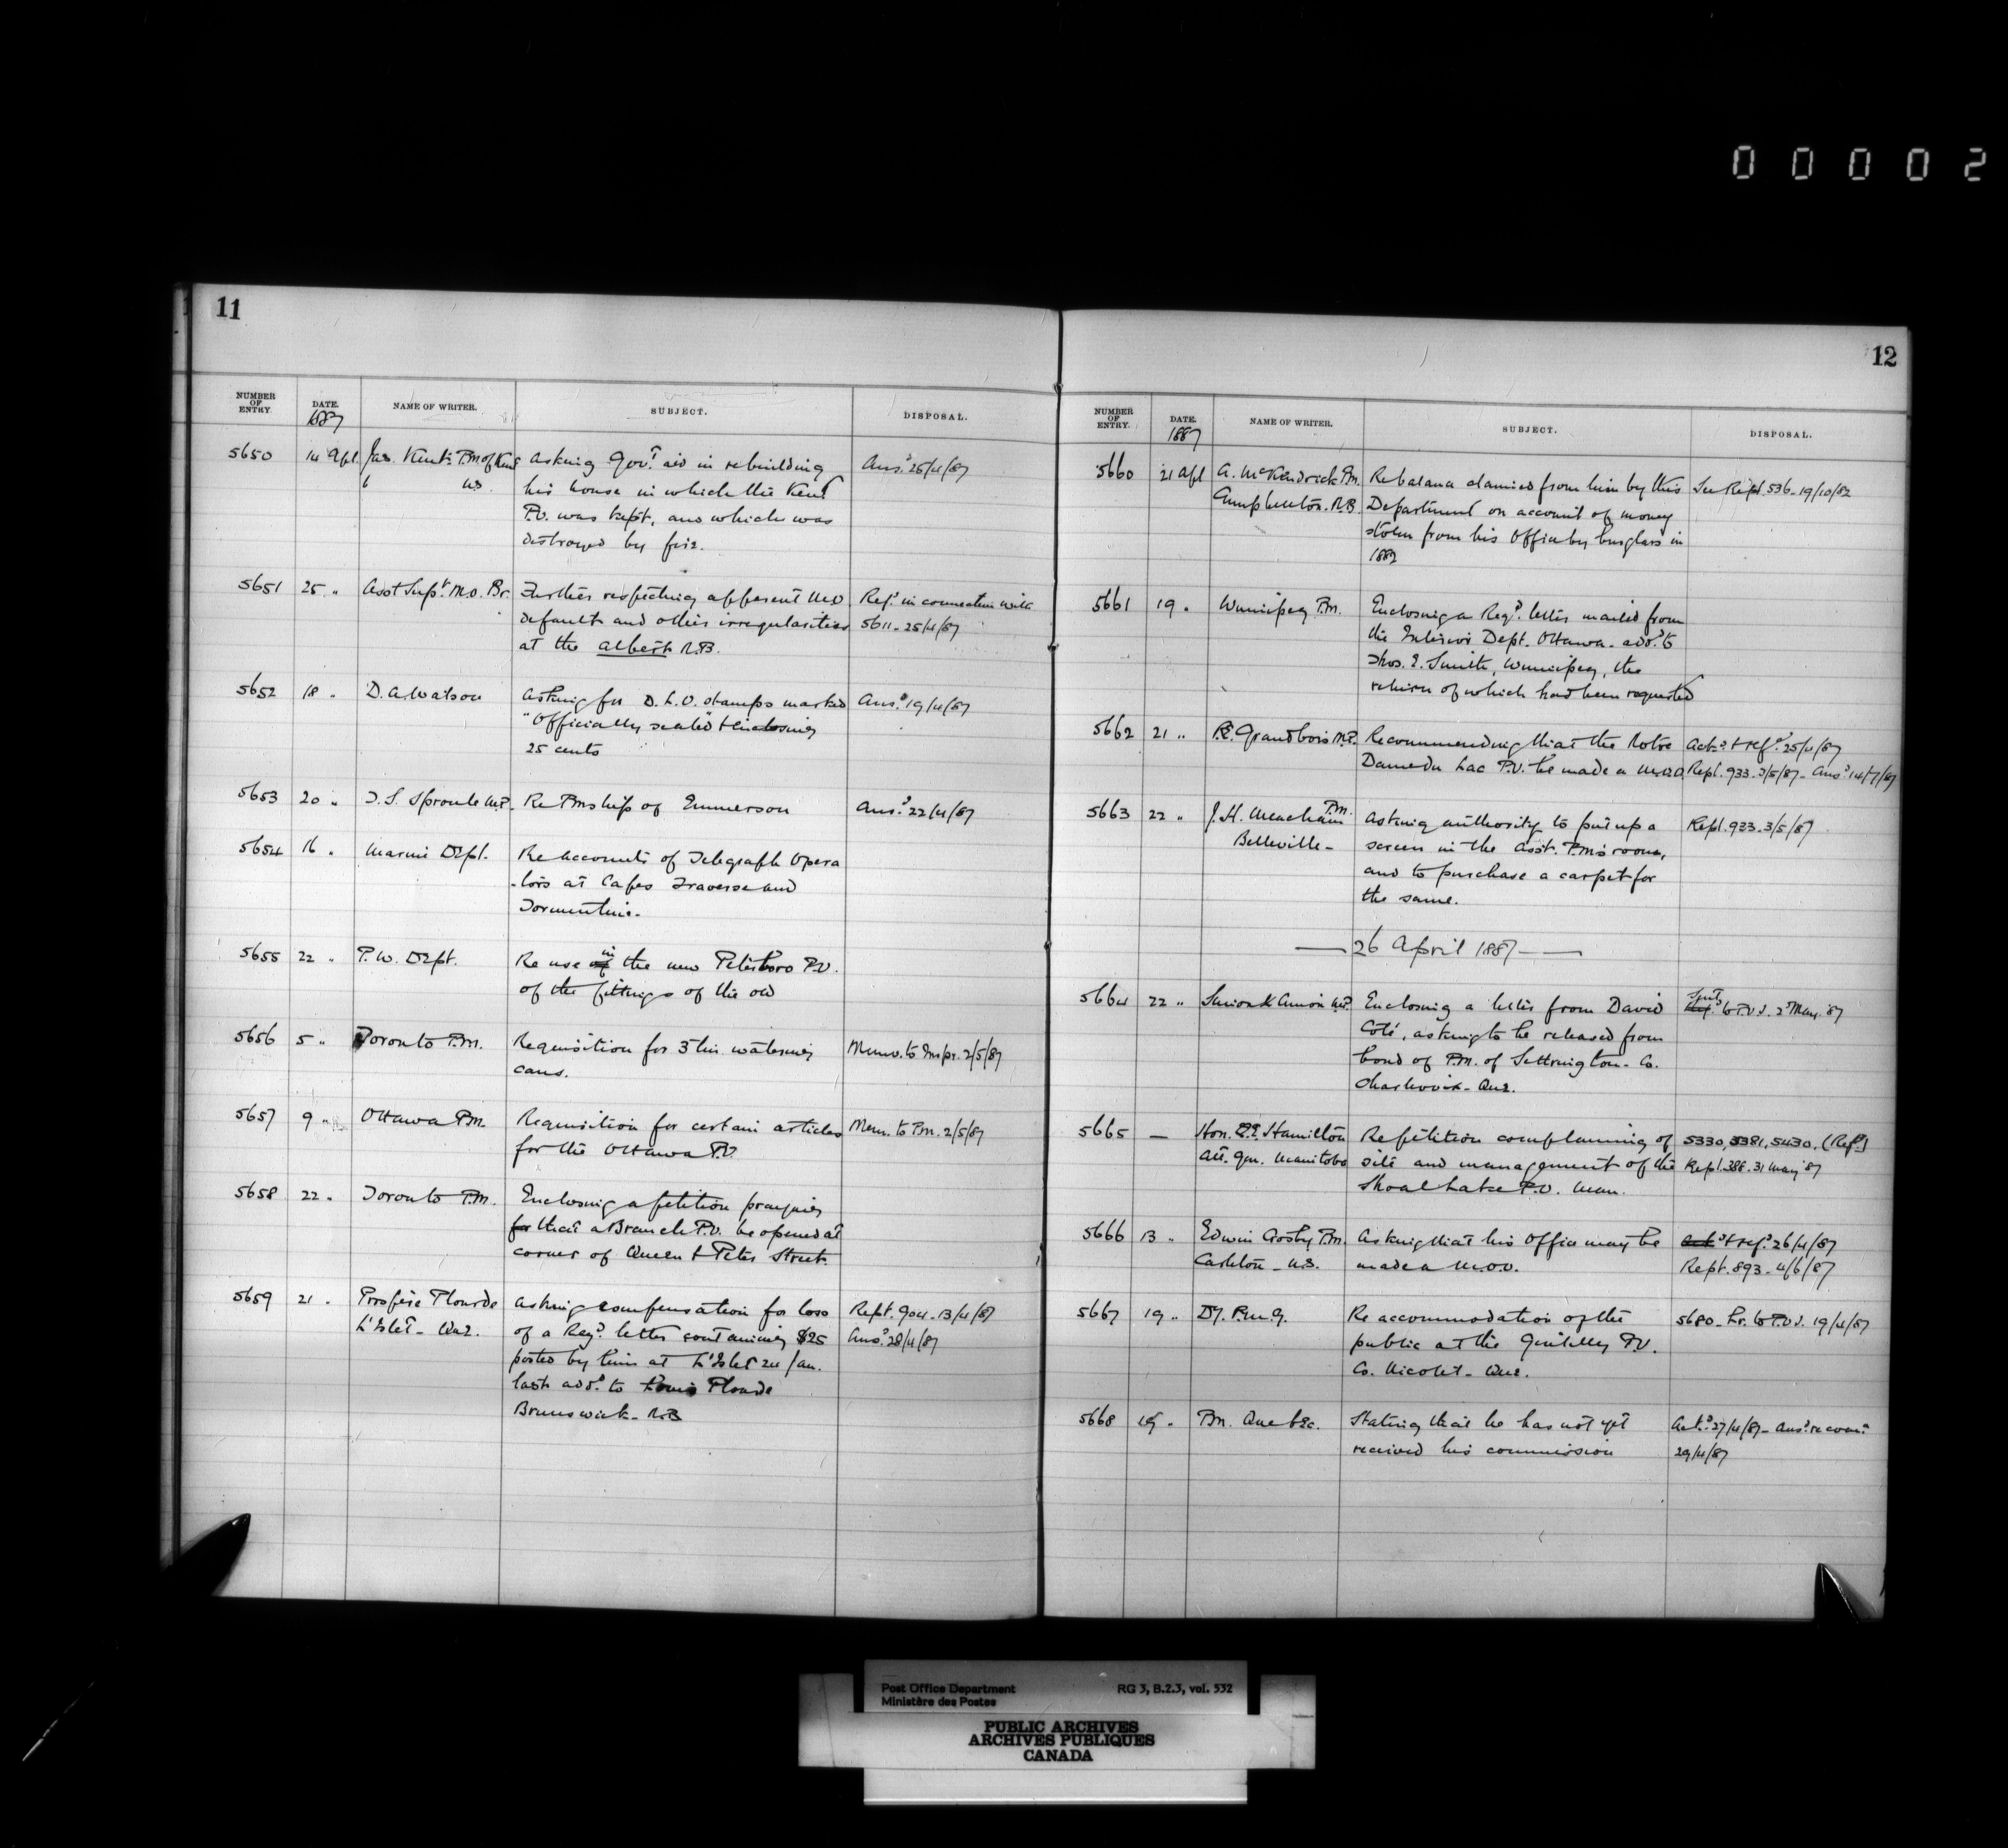 00002
11
NUMBER OF ENTRY.
DATE. 1887
NAME OF WRITER.
SUBJECT.
DISPOSAL.
5650 14 Apl. Jas. Kent P.M. of Kent Asking Gov.t aid in rebuilding Ans.d 25/4/87
N.S. his house in which the Kent
P.O. was kept, and which was
destroyed by fire.
5651 25 " Asst Sup.t M.O. Br. Further respecting apparent M.O. Ref.d in connection with
default and other irregularities 5611 - 25/4/87
at the Albert N.B.
5652 18 " D. A. Watson Asking for D.L.O. stamps marked Ans.d 19/4/87
"Officially sealed" & enclosing
25 cents
5653 20 " T. S. Sproule M.P. Re PMship of Emmerson Ans.d 22/4/87
5654 16 " Marine Dept. Re accounts of Telegraph Opera
-tors at Capes Traverse and
Tormentine.
5655 22 " P.W. Dept. Re use of in the new Peterboro P.O.
of the fittings of the old
5656 5 " Toronto P.M. Requisition for 3 tin watering Memo. to Inspr. 2/5/87
cans.
5657 9 " Ottawa P.M. Requisition for certain articles Mem. to P.M. 2/5/87
for the Ottawa P.O.
5658 22 " Toronto P.M. Enclosing a petition praying
for that a Branch P.O. be opened at
corner of Queen & Peter Street.
5659 21 " Prospère Plourde Asking compensation for loss Rept. 904 - 13/4/87
L'Islet - Que. of a Reg.d letter containing $25 Ans.d 28/4/87
posted by him at L'Islet 24 Jan.
last add.d to Louis Plourde
Brunswick - N.B.
12
NUMBER OF ENTRY.
DATE. 1887
NAME OF WRITER.
SUBJECT.
DISPOSAL.
5660 21 Apl A. McKendrick P.M. Re balance claimed from him by this See Rept. 536 - 19/10/82
Campbellton. N.B. Department on account of money
stolen from his Office by burglars in
1882
5661 19 " Winnipeg P.M. Enclosing a Reg.d letter mailed from
the Interior Dept. Ottawa - add.d to
Thos. E. Smith, Winnipeg, the
return of which had been requested
5662 21 " P.E. Grandbois M.P. Recommending that the Notre Ack.d & ref.d 25/4/87
Dame du Lac P.O. be made a M.O.O. Rept. 933 - 3/5/87 - Ans.d 14/7/87
5663 22 " J. H. Meacham P.M. Asking authority to put up a Rept. 933 - 3/5/87
Belleville - screen in the Asst. P.M's room,
and to purchase a carpet for
the same.
26 April 1887
5664 22 " Simon X Cimon M.P. Enclosing a letter from David Sent to P.O.I. 2d May '87
Coté, asking to be released from
bond of P.M. of Settrington - Co.
Charlevoix - Que.
5665 — Hon. C.E. Hamilton Re petition complaining of 5330, 5381, 5430. (Ref.d)
Att. Gen. Manitoba site and management of the Rept. 388 - 31 May '87
Shoal Lake P.O. Man.
5666 13 " Edwin Crosby P.M. Asking that his Office may be Ack.d & ref.d 26/4/87
Carleton - N.S. made a M.O.O. Rept. 893 - 4/6/87
5667 19 " Dy. P.M.G. Re accommodation of the 5680 - Lr. to P.O.I. 19/4/87
public at the Gentilly P.O.
Co. Nicolet - Que.
5668 19 " P.M. Quebec. Stating that he has not yet Ack.d 27/4/87 - Ans.d re
received his commission 29/4/87
Post Office Department
Ministère des Postes
RG 3, B.2.3, vol. 532
PUBLIC ARCHIVES
ARCHIVES PUBLIQUES
CANADA